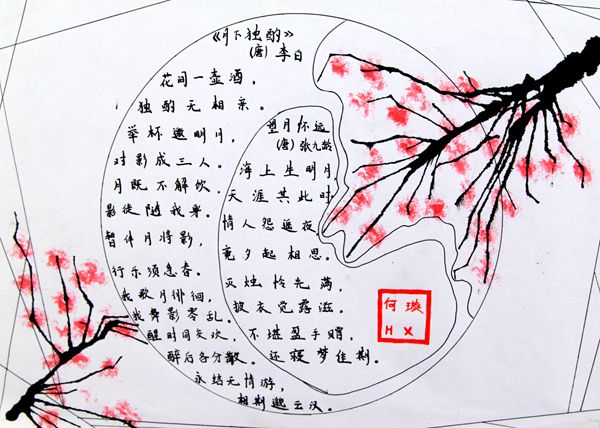 《月下独酌》
(唐) 李白
花间一壶酒，
独酌无相亲。
举杯邀明月，
对影成三人。
月既不解饮，
影徒随我身。
暂伴月将影，
行乐须急春。
我歌月徘徊，
我舞影零乱。
醒时同交欢，
醉后各分散。
永结无情游，
相期邈云汉。
望月怀远
(唐) 张九龄
海上生明月
天涯共此时
情人怨遥夜，
竟夕起相思。
灭烛怜光满，
披衣觉露滋。
不堪盈手赠，
还寝梦佳期。
何璇
HX